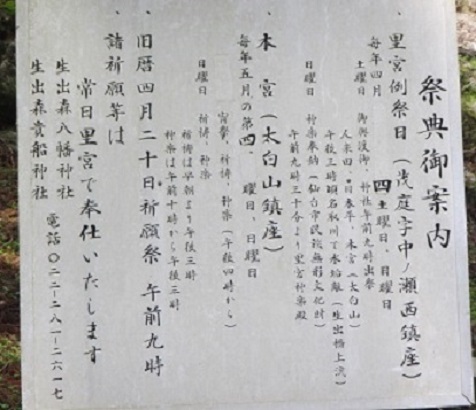 祭典御案内
・里宮例祭日（茂庭字中ノ瀬西鎮座）
毎年四月 四土曜日、日曜日
土曜日 御輿渡御 神社午前九時出発
人来田、日本平、本宮（太白山）
午後三時頃名取川で
（生出橋上流）
日曜日 神楽奉納（仙台市民俗無形文化財）
午前九時三十分より里宮神楽殿
・本宮（太白山鎮座）
毎年五月の第四、曜日、日曜日
宵祭、祈祷、神楽（午後四時から）
日曜日 祈祷、神楽
祈祷は早朝より午後三時
神楽は午前十時から午後三時
・旧暦四月二十日祈願祭 午前九時
・諸祈願等は
常日里宮で奉仕いたします
生出森八幡神社
生出森貴船神社
電話〇二二-二八一-二六一七